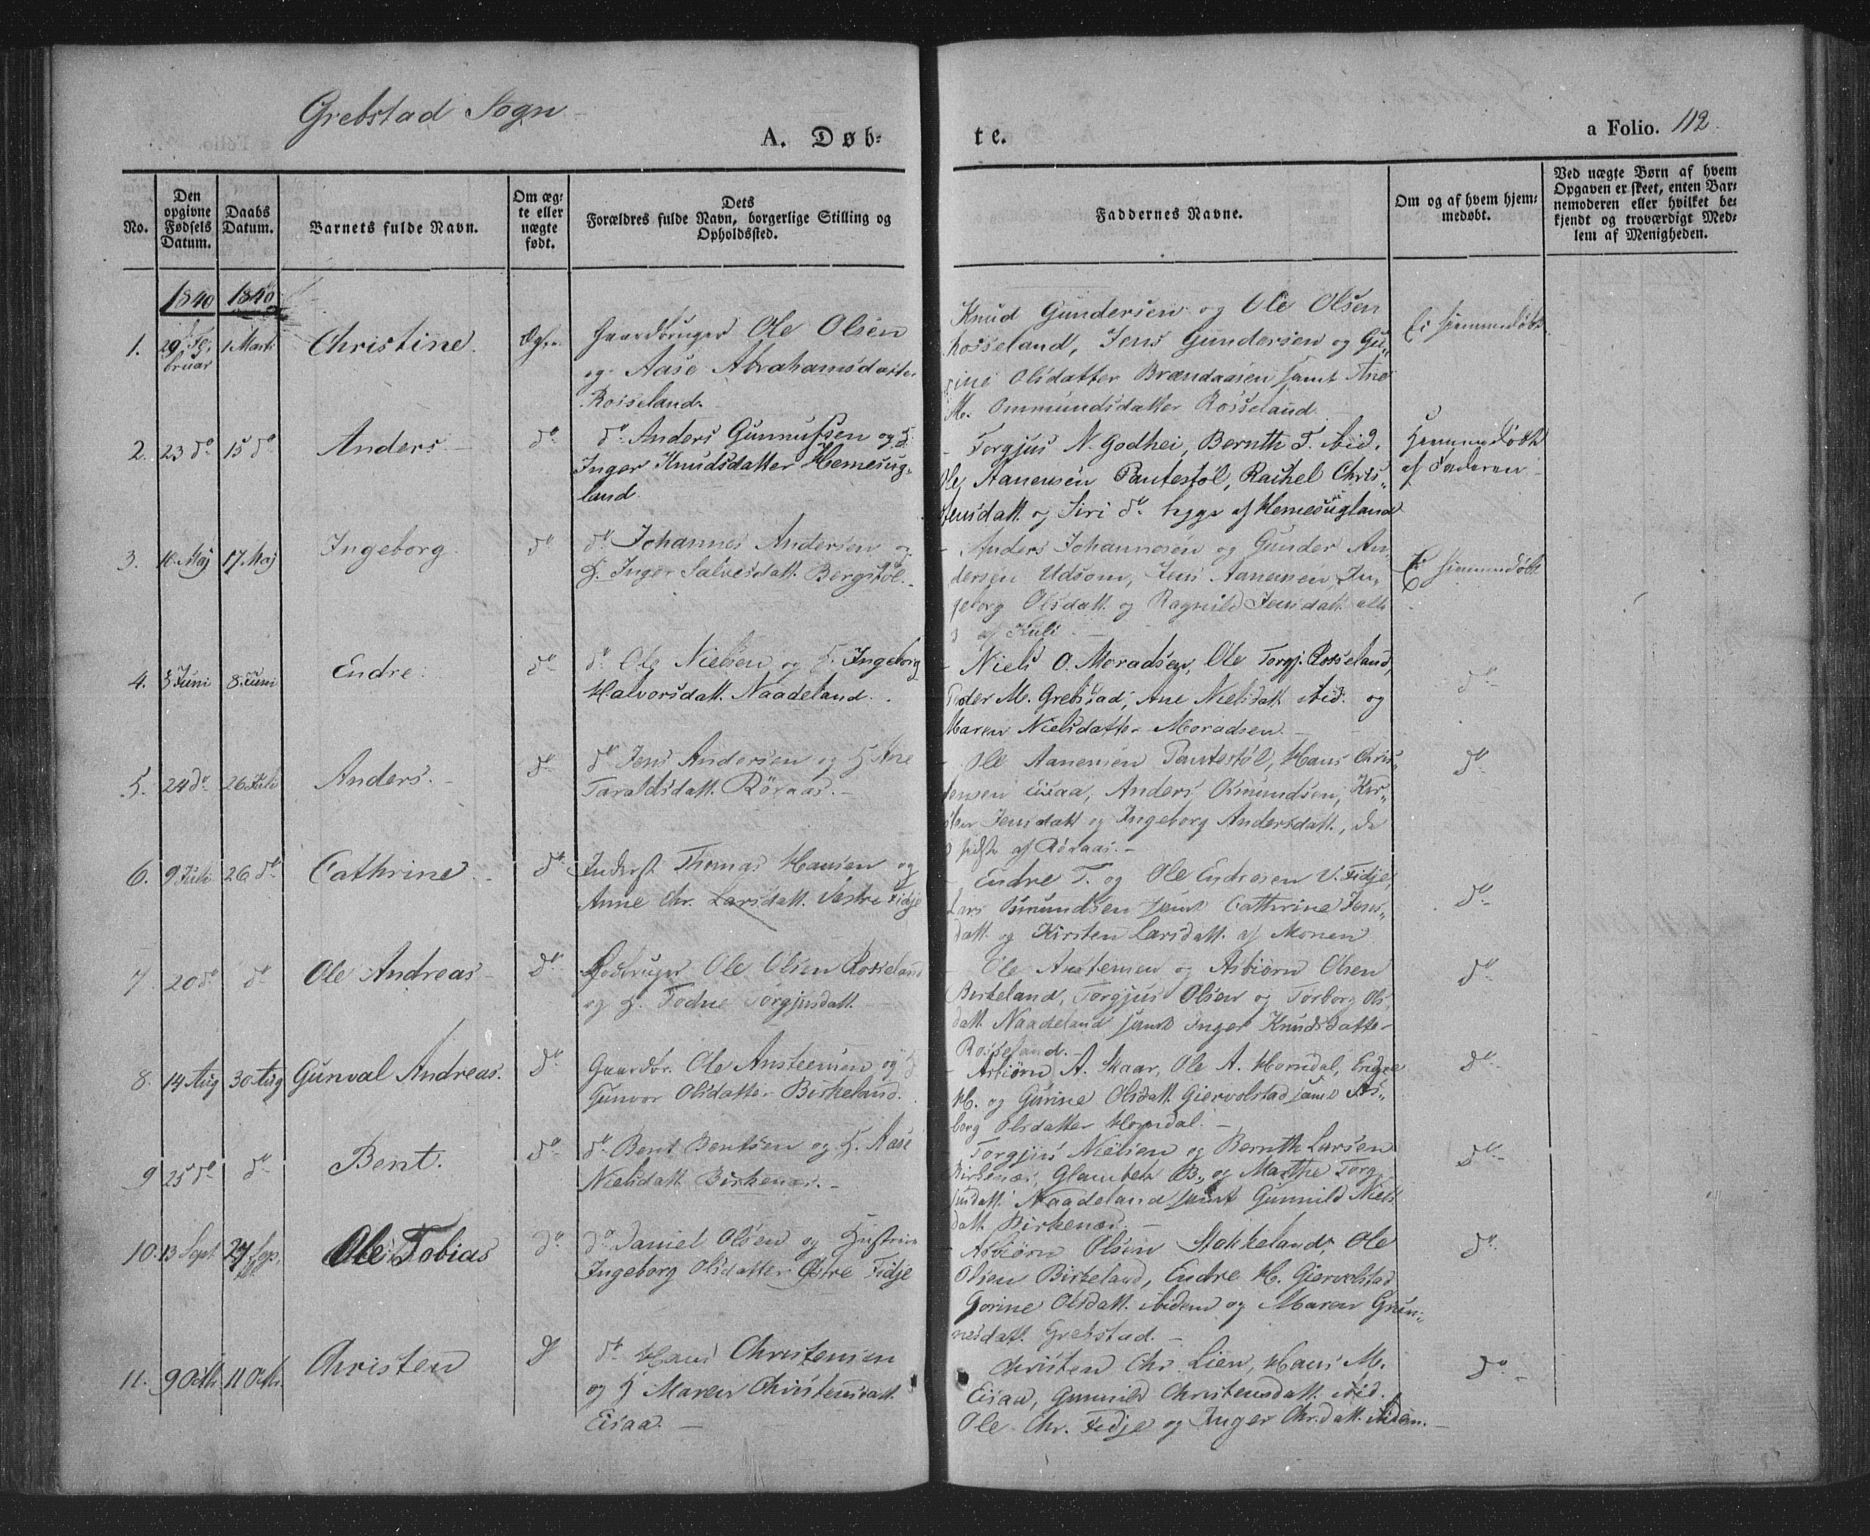 Grebstad Sogn
A. Døb-
te.
a Folio. 112.
No.
Den opgivne Fødsels Datum.
Daabs Datum.
Barnets fulde Navn.
Om ægte eller uægte født.
Dets
Forældres fulde Navn, borgerlige Stilling og
Opholdssted.
Faddernes Navne.
Om og af hvem hjemmedøbt.
Ved uægte Børn af hvem
Opgaven er skeet, enten Bar-
nemoderen eller hvilket be-
kjendt og troværdigt Med-
lem af Menigheden.
1840 1840
1. 29. Februar 1 Marts Christine Ægte. Gaardbruger Ole Olsen
og Aase Abrahamsdatter
Rosseland.
Knud Gundersen og Ole Olsen
Rosseland, Jens Gundersen og Gu-
rine Olsdatter Brændaasen samt Ane
M. Ommundsdatter Rosseland
Ei hjemmedøbt
2. 23 do 15 do Anders do do Anders Gunnufsen og H.
Inger Knudsdatter Hemesug-
land
Torgjus N. Godhei, Bernth T. ibid.
Ole Aanensen Pantestøl, Rachel Chris-
tensdatt. og Siri do begge af Hemesugland
Hjemmedøbt
af Faderen
3. 10 Maj 17 Maj Ingeborg do do Johannes Andersen og
H. Inger Salvesdatt. Bergstøl.
Anders Johannesen og Gunder An-
dersen Udsom, Jens Aanensen, In-
geborg Olsdatt. og Ragnild Jensdatt. alle
3 af Kuli
Ei hjemmedøbt
4. 3 Juni 8. Juni Endre do do Ole Nielsen og H. Ingeborg
Halvorsdatt. Naadeland.
Niels O. Moradsen, Ole Torgj. Rosseland,
Peder M. Grebstad, Ane Nielsdatt. ibid. og
Maren Nielsdatter Moradsen
do
5. 24 do 26 Juli Anders. do do Jens Andersen og H. Ane
Taraldsdatt. Røraas.
Ole Aanensen Pantestøl, Hans Chris-
tensen Eisaa, Anders Osmundsen, Kir-
sten Jensdatt og Ingeborg Andersdatt., de
3 sidste af Røraas.
do
6. 9 Juli 26 do Cathrine do Inderst Thomas Hansen og
Anne Chr. Larsdatt. Vestre Fidje
Endre T. og Ole Endresen V. Fidje,
Lars Osmundsen samt Cathrine Jens-
datt. og Kirsten Larsdatt. af Monen
do
7. 20 do do Ole Andreas do Ole Olsen Rosseland
og H. Todne Torgjusdatt.
Ole Anstensen og Asbiørn Olsen
Birkeland, Torgjus Olsen og Torborg Ols-
datt. Naadeland samt Inger Knudsdatter
Rosseland.
do
8. 14 Aug 30 Aug Gunval Andreas. do Gaardbr. Ole Ansteensen og H
Gunvor Olsdatter Birkeland.
Asbiørn A. Skaar, Ole A. Horndal, Endre
H. og Gurine Olsdatt. Giervolstad samt As-
borg Olsdatter Horndal.
do
9 25 do do Bent. do do Bent Bentsen og H. Aase
Nielsdatt. Birkenæs.
Torgjus Nielsen og Bernth Larsen
Birkenæs, B. og Marthe Torg-
jusdatt. Naadeland samt Gunnild Niels-
datt. Birkenæs.
do
10. 13 Sept 27 Sept. Ole Tobias do do Daniel Olsen og Hustrue
Ingeborg Olsdatter Østre Fidje
Asbiørn Olsen Stokkeland, Ole
Olsen Birkeland, Endre H. Giervolstad
Gorine Olsdatt. ibidem og Maren Gun-
nesdatt. Grebstad.
do
11. 9 Octb. 11 Octbr. Christen do do Hans Christensen
og H Maren Christensdatt.
Eisaa.
Christen Chr. Lien, Hans M.
Eisaa, Gunnild Christensdatt. ibid.
Ole Chr. Fidje og Inger Chr.datt. ibidem.
do